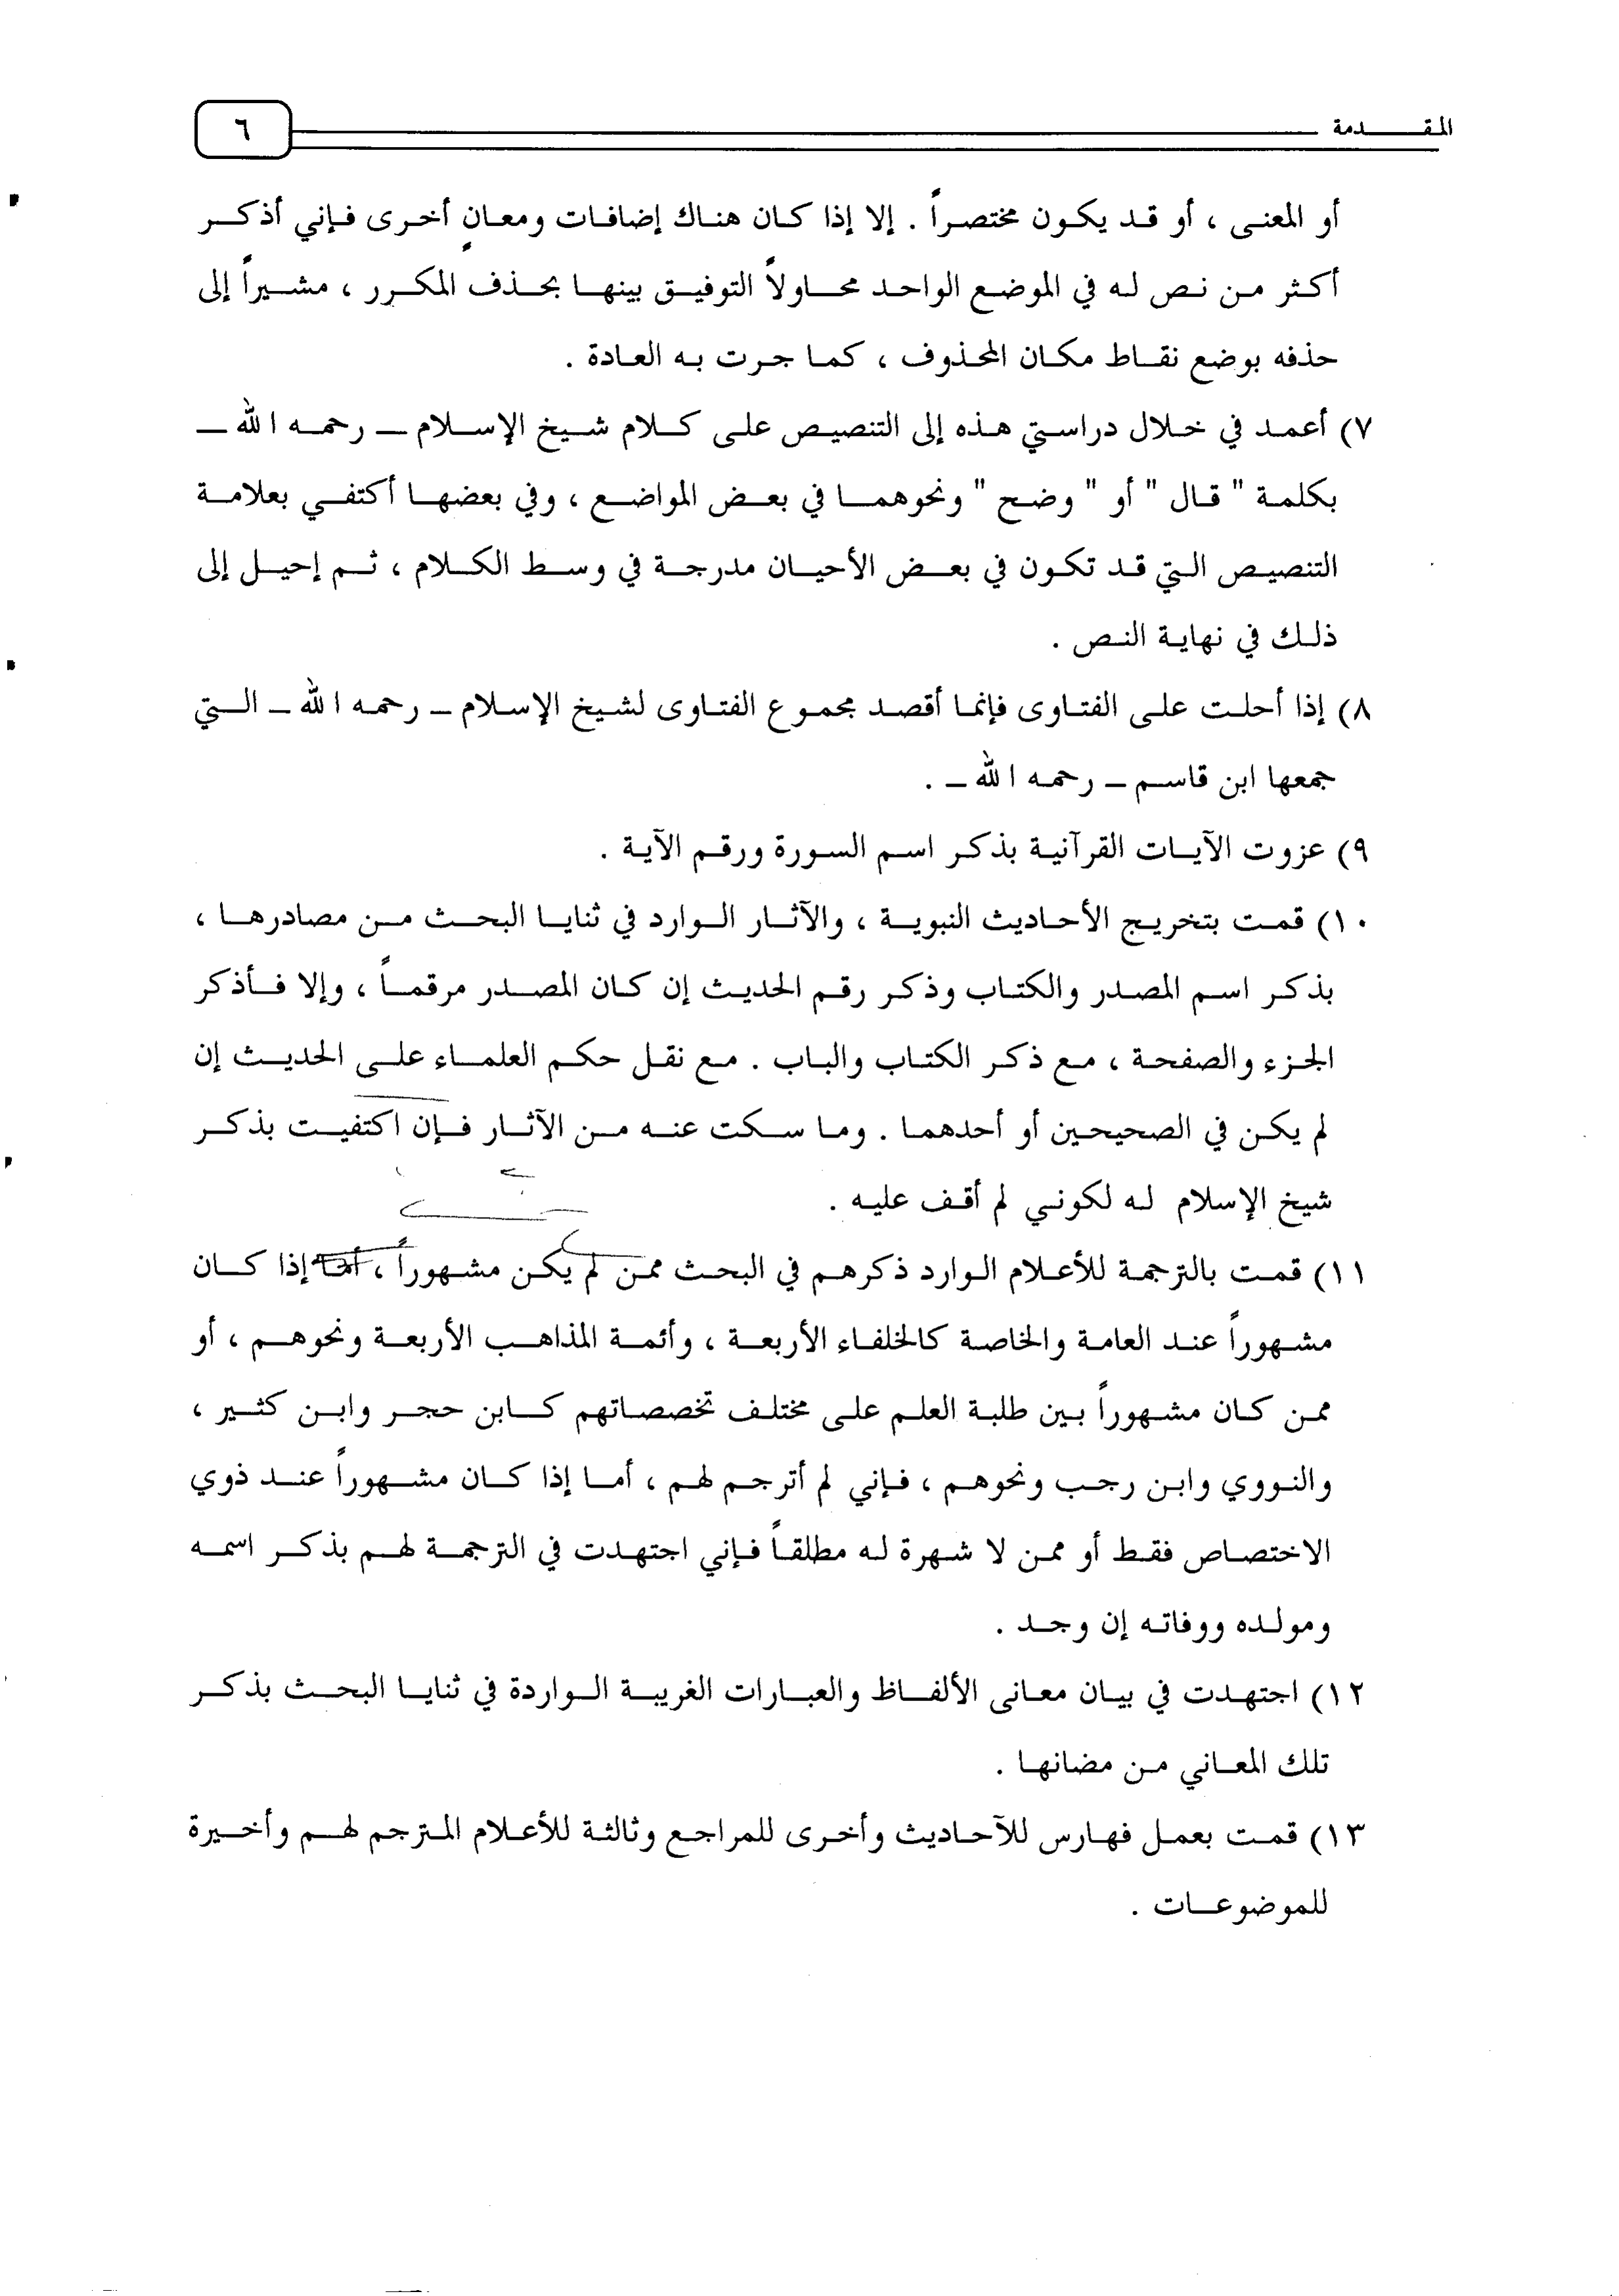 المقدمة
٦
أو المعنى ، أو قد يكون مختصراً . إلا إذا كان هناك إضافات ومعانٍ أخرى فإني أذكر
أكثر من نص له في الموضع الواحد محاولاً التوفيق بينها بحذف المكرر ، مشيراً إلى
حذفه بوضع نقاط مكان المحذوف ، كما جرت به العادة .
٧) أعمد في خلال دراستي هذه إلى التنصيص على كلام شيخ الإسلام – رحمه الله –
بكلمة " قال " أو " وضح " ونحوهما في بعض المواضع ، وفي بعضها أكتفي بعلامة
التنصيص التي قد تكون في بعض الأحيان مدرجة في وسط الكلام ، ثم إحيل إلى
ذلك في نهاية النص .
٨) إذا أحلت على الفتاوى فإنما أقصد مجموع الفتاوى لشيخ الإسلام – رحمه الله – التي
جمعها ابن قاسم – رحمه الله – .
٩) عزوت الآيات القرآنية بذكر اسم السورة ورقم الآية .
١٠) قمت بتخريج الأحاديث النبوية ، والآثار الوارد في ثنايا البحث من مصادرها ،
بذكر اسم المصدر والكتاب وذكر رقم الحديث إن كان المصدر مرقماً ، وإلا فأذكر
الجزء والصفحة ، مع ذكر الكتاب والباب . مع نقل حكم العلماء على الحديث إن
لم يكن في الصحيحين أو أحدهما . وما سكت عنه من الآثار فإن اكتفيت بذكر
شيخ الإسلام له لكوني لم أقف عليه .
١١) قمت بالترجمة للأعلام الوارد ذكرهم في البحث ممن لم يكن مشهوراً ، أما إذا كان
مشهوراً عند العامة والخاصة كالخلفاء الأربعة ، وأئمة المذاهب الأربعة ونحوهم ، أو
ممن كان مشهوراً بين طلبة العلم على مختلف تخصصاتهم كابن حجر وابن كثير ،
والنووي وابن رجب ونحوهم ، فإني لم أترجم لهم ، أما إذا كان مشهوراً عند ذوي
الاختصاص فقط أو ممن لا شهرة له مطلقاً فإني اجتهدت في الترجمة لهم بذكر اسمه
ومولده ووفاته إن وجد .
١٢) اجتهدت في بيان معانى الألفاظ والعبارات الغريبة الواردة في ثنايا البحث بذكر
تلك المعاني من مضانها .
١٣) قمت بعمل فهارس للآحاديث وأخرى للمراجع وثالثة للأعلام المترجم لهم وأخيرة
للموضوعات .